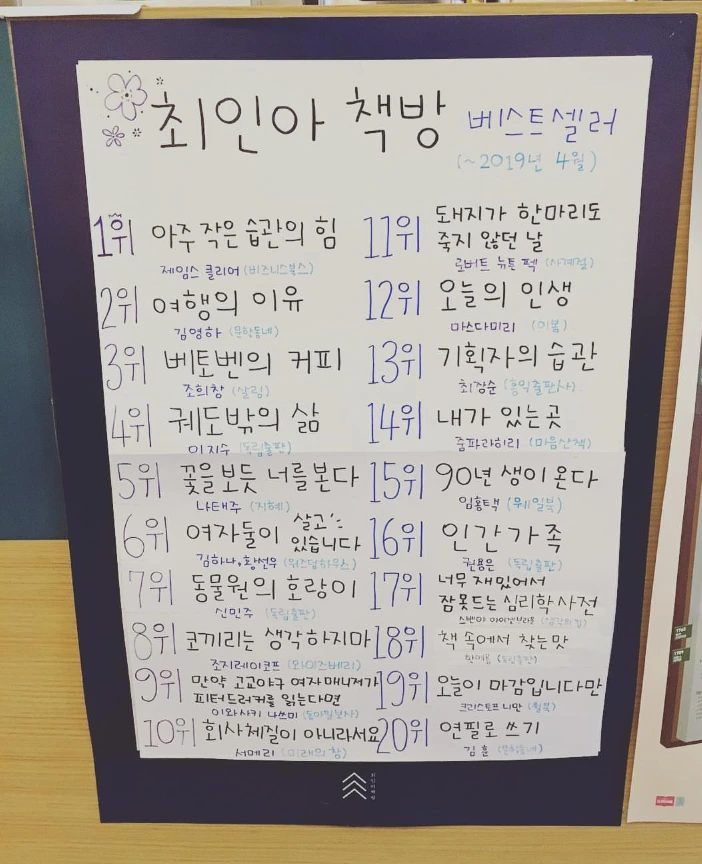 최인아 책방 베스트셀러
(~2019년 4월)
1위 아주 작은 습관의 힘
제임스 클리어 (비즈니스북스)
2위 여행의 이유
김영하 (문학동네)
3위 베토벤의 커피
조희창 (살림)
4위 궤도밖의 삶
이지수 (독립출판)
5위 꽃을 보듯 너를 본다
나태주 (지혜)
6위 여자둘이 살고
있습니다
김하나, 황선우 (위즈덤하우스)
7위 동물원의 호랑이
신민주 (독립출판)
8위 코끼리는 생각하지마
조지레이코프 (와이즈베리)
9위 만약 고교야구 여자 매니저가
피터드러커를 읽는다면
이와사키 나쓰미 (동아일보사)
10위 회사체질이 아니라서요
서메리 (미래의창)
11위 돼지가 한마리도
죽지 않던 날
로버트 뉴튼 펙 (사계절)
12위 오늘의 인생
마스다미리 (이봄)
13위 기획자의 습관
최장순 (홍익출판사)
14위 내가 있는곳
줌파라히리 (마음산책)
15위 90년 생이 온다
임홍택 (웨일북)
16위 인간가족
권용은 (독립출판)
17위 너무 재밌어서
잠못드는 심리학 사전
18위 책 속에서 찾는 맛
(독립출판)
19위 오늘이 마감입니다만
크리스토프 니만 (윌북)
20위 연필로 쓰기
김훈 (문학동네)